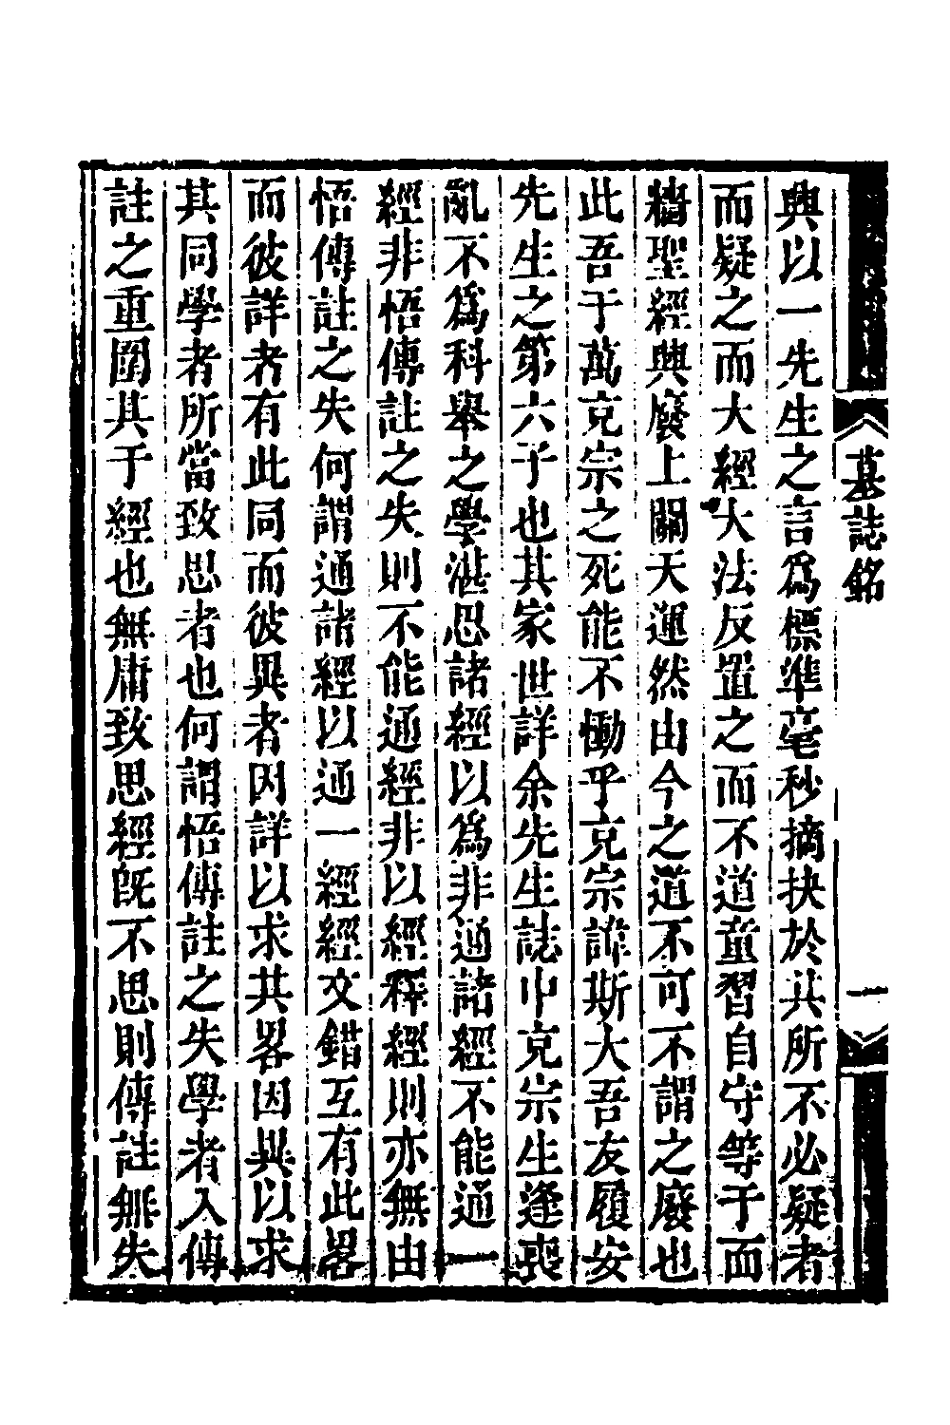 墓誌銘
一
興以一先生之言爲標準毫秒摘抉於其所不必疑者
而疑之而大經大法反置之而不道童習自守等于面
牆聖經興廢上關天運然由今之道不可不謂之廢也
此吾于萬充宗之死能不慟乎充宗諱斯大吾友履安
先生之第六子也其家世詳余先生誌中充宗生逢喪
亂不爲科舉之學湛思諸經以爲非通諸經不能通一
經非悟傳註之失則不能通經非以經釋經則亦無由
悟傳註之失何謂通諸經以通一經經文錯互有此畧
而彼詳者有此同而彼異者因詳以求其畧因異以求
其同學者所當致思者也何謂悟傳註之失學者入傳
註之重圍其于經也無庸致思經旣不思則傳註無失